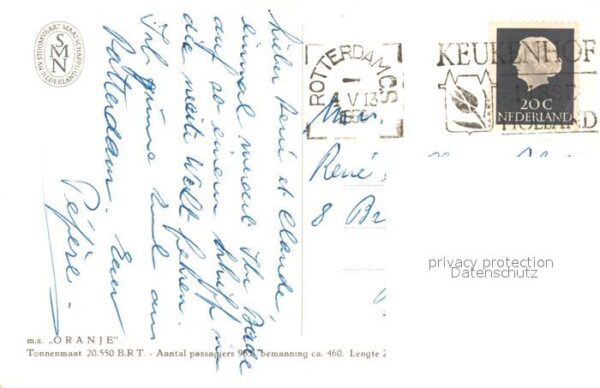 N.V. STOOMVAART MAATSCHAPPIJ "NEDERLAND"
SMN
Lieber René et Claude,
einmal werdet Ihr Beide
auf so einem Schiff in
die weite Welt fahren.
Ich grüsse Euch aus
Rotterdam. Euer
Pépère.
ROTTERDAM C.S
4 V 13
KEUKENHOF
LISSE
HOLLAND
20 C
NEDERLAND
René
8 Br
privacy protection
Datenschutz
m.s. „ORANJE"
Tonnenmaat 20.550 B.R.T. - Aantal passagiers bemanning ca. 460. Lengte 2